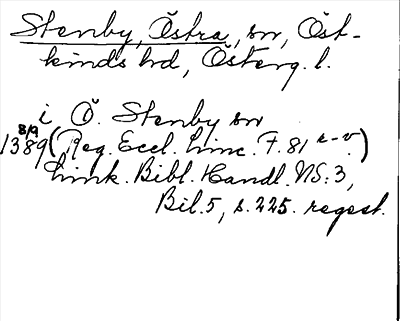 Stenby, Östra, sn, Öst-
kinds hd, Österg. l.
i Ö. Stenby sn
8/9
1389 (Reg. Eccl. Linc. F. 81 r-v.)
Link. Bibl. Handl. NS:3,
Bil. 5, s. 225. regest.